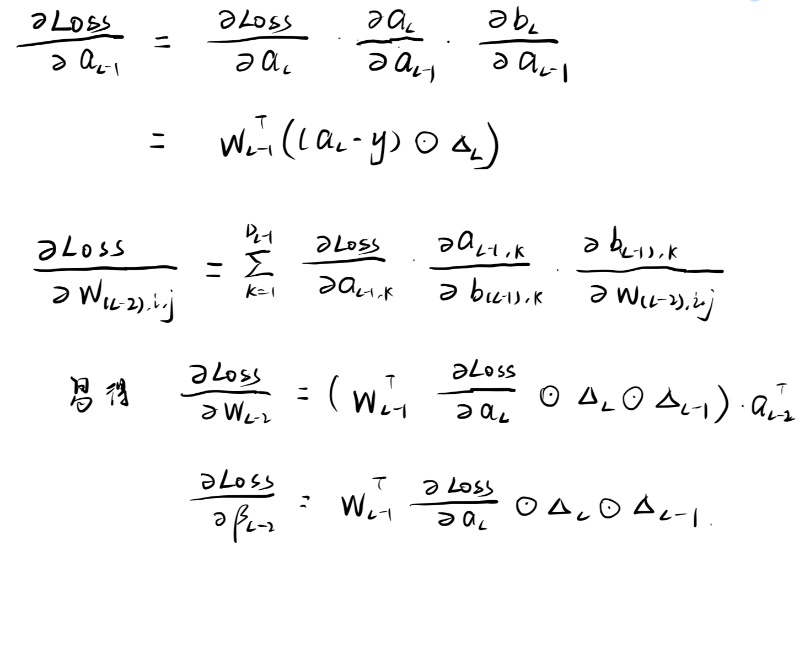 ∂Loss/∂a_{L-1} = ∂Loss/∂a_L · ∂a_L/∂a_{L-1} · ∂b_L/∂a_{L-1}
= W_{L-1}^T((a_L-y) ⊙ Δ_L)
∂Loss/∂W_{(L-2),i,j} = ∑_{k=1}^{D_{L-1}} ∂Loss/∂a_{L-1,k} · ∂a_{L-1,k}/∂b_{(L-1),k} · ∂b_{(L-1),k}/∂W_{(L-2),i,j}
易得 ∂Loss/∂W_{L-2} = (W_{L-1}^T ∂Loss/∂a_L ⊙ Δ_L ⊙ Δ_{L-1}) · a_{L-2}^T
∂Loss/∂β_{L-2} = W_{L-1}^T ∂Loss/∂a_L ⊙ Δ_L ⊙ Δ_{L-1}.